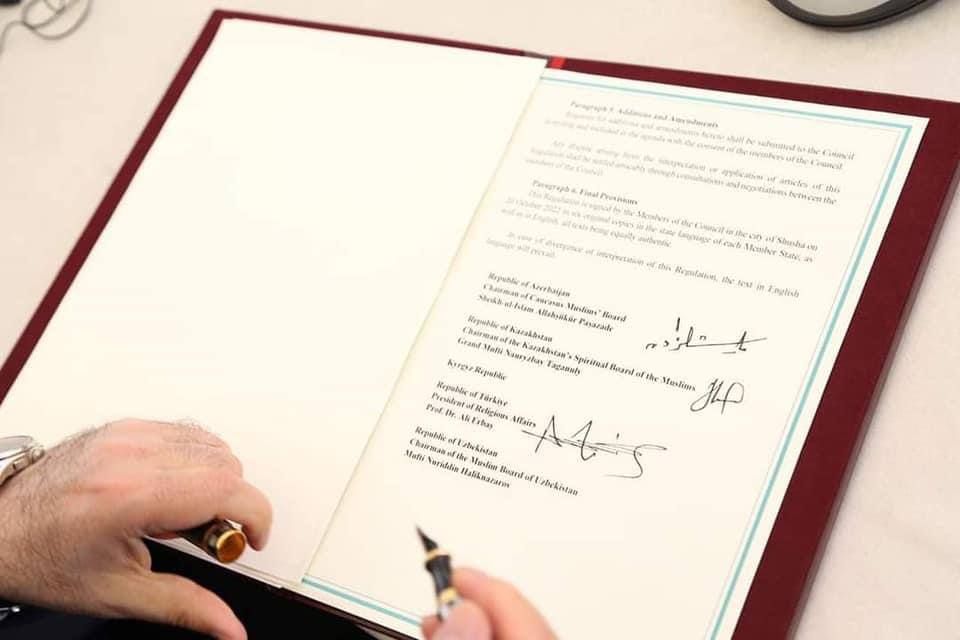 Paragraph 5. Additions and Amendments
Requests for additions and amendments hereto shall be submitted to the Council
in writing and included in the agenda with the consent of the members of the Council.
Any dispute arising from the interpretation or application of articles of this
Regulation shall be settled amicably through consultations and negotiations between the
members of the Council.
Paragraph 6. Final Provisions
This Regulation is signed by the Members of the Council in the city of Shusha on
20 October 2022 in six original copies in the state language of each Member State, as
well as in English, all texts being equally authentic.
In case of divergence of interpretation of this Regulation, the text in English
language will prevail.
Republic of Azerbaijan
Chairman of Caucasus Muslims' Board
Sheikh-ul-Islam Allahşükür Paşazade
Republic of Kazakhstan
Chairman of the Kazakhstan's Spiritual Board of the Muslims
Grand Mufti Nauryzbay Taganuly
Kyrgyz Republic
Republic of Türkiye
President of Religious Affairs
Prof. Dr. Ali Erbaş
Republic of Uzbekistan
Chairman of the Muslim Board of Uzbekistan
Mufti Nuriddin Haliknazarov